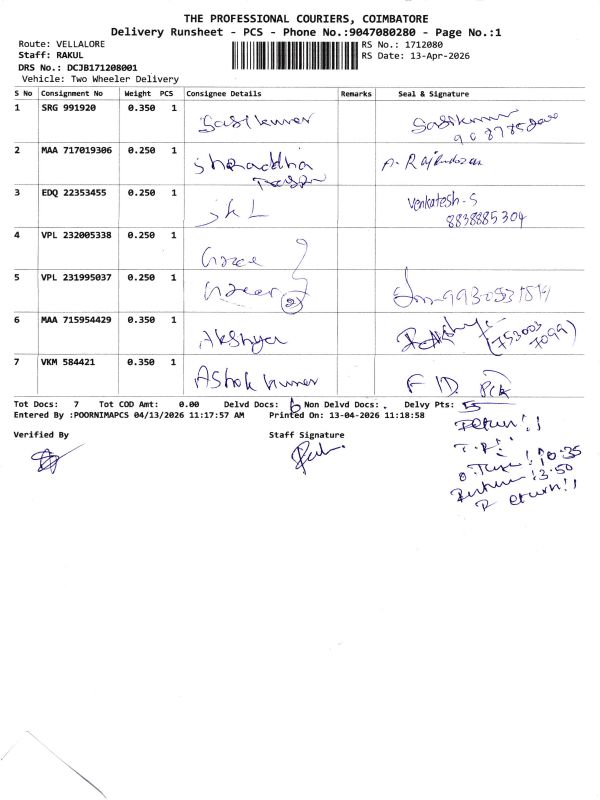 THE PROFESSIONAL COURIERS, COIMBATORE
Delivery Runsheet - PCS - Phone No.:9047080280 - Page No.:1
Route: VELLALORE RS No.: 1712080
Staff: RAKUL RS Date: 13-Apr-2026
DRS No.: DCJB171208001
Vehicle: Two Wheeler Delivery
S No Consignment No Weight PCS Consignee Details Remarks Seal & Signature
1 SRG 991920 0.350 1 Sasikumar Sasikumar
2 MAA 717019306 0.250 1 Shraddha
3 EDQ 22353455 0.250 1 JKL Venkatesh-S
8838885304
4 VPL 232005338 0.250 1 Grace
5 VPL 231995037 0.250 1 2
6 MAA 715954429 0.350 1 Akshya
7 VKM 584421 0.350 1 Ashok kumar
Tot Docs: 7 Tot COD Amt: 0.00 Delvd Docs: 6 Non Delvd Docs: . Delvy Pts: 5
Entered By :POORNIMAPCS 04/13/2026 11:17:57 AM Printed On: 13-04-2026 11:18:58
Verified By Staff Signature
Return!!